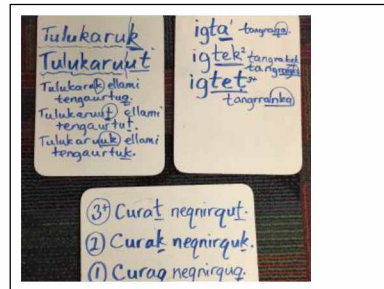 Tulukaruk
Tulukaruut
Tulukaruk ellami
tengaurtuq.
Tulukaruut ellami
tengaurtut.
Tulukaruuk ellami
tengaurtuk.
igta'
igtek² tangrakek
igtet³⁺
③⁺ Curat neqnirqut.
② Curak neqnirquk.
① Curaq neqnirquq.